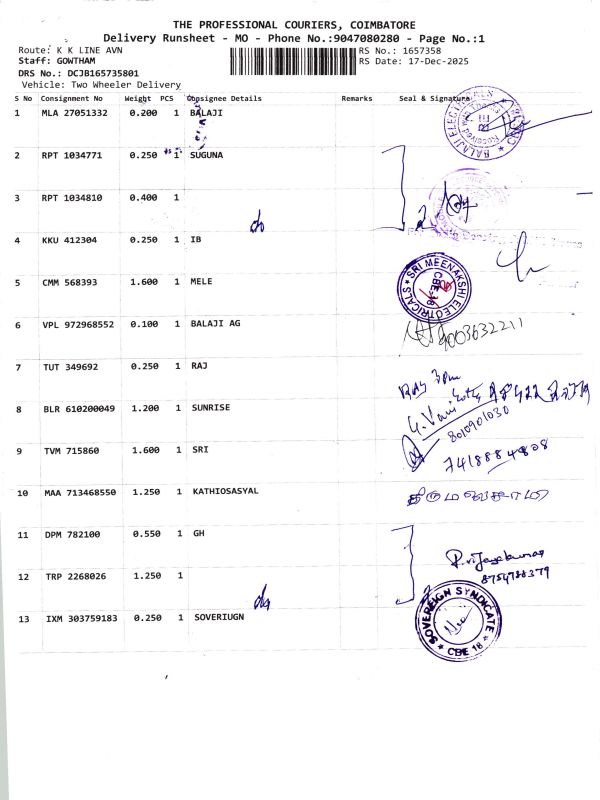 THE PROFESSIONAL COURIERS, COIMBATORE
Delivery Runsheet - MO - Phone No.:9047080280 - Page No.:1
Route: K K LINE AVN RS No.: 1657358
Staff: GOWTHAM RS Date: 17-Dec-2025
DRS No.: DCJB165735801
Vehicle: Two Wheeler Delivery
S No Consignment No Weight PCS Consignee Details Remarks Seal & Signature
1 MLA 27051332 0.200 1 BALAJI
BALAJI ELECTRICALS
Received with Thanks
2 RPT 1034771 0.250 1 SUGUNA
3 RPT 1034810 0.400 1
do
2
4 KKU 412304 0.250 1 IB
5 CMM 568393 1.600 1 MELE
SRI MEENAKSHI ELECTRICALS
CBE-18
6 VPL 972968552 0.100 1 BALAJI AG
9003632211
7 TUT 349692 0.250 1 RAJ
8 BLR 610200049 1.200 1 SUNRISE
8010901030
9 TVM 715860 1.600 1 SRI
7418884808
10 MAA 713468550 1.250 1 KATHIOSASYAL
11 DPM 782100 0.550 1 GH
8754788379
12 TRP 2268026 1.250 1
do
2
13 IXM 303759183 0.250 1 SOVERIUGN
SOVEREIGN SYNDICATE
CBE 18